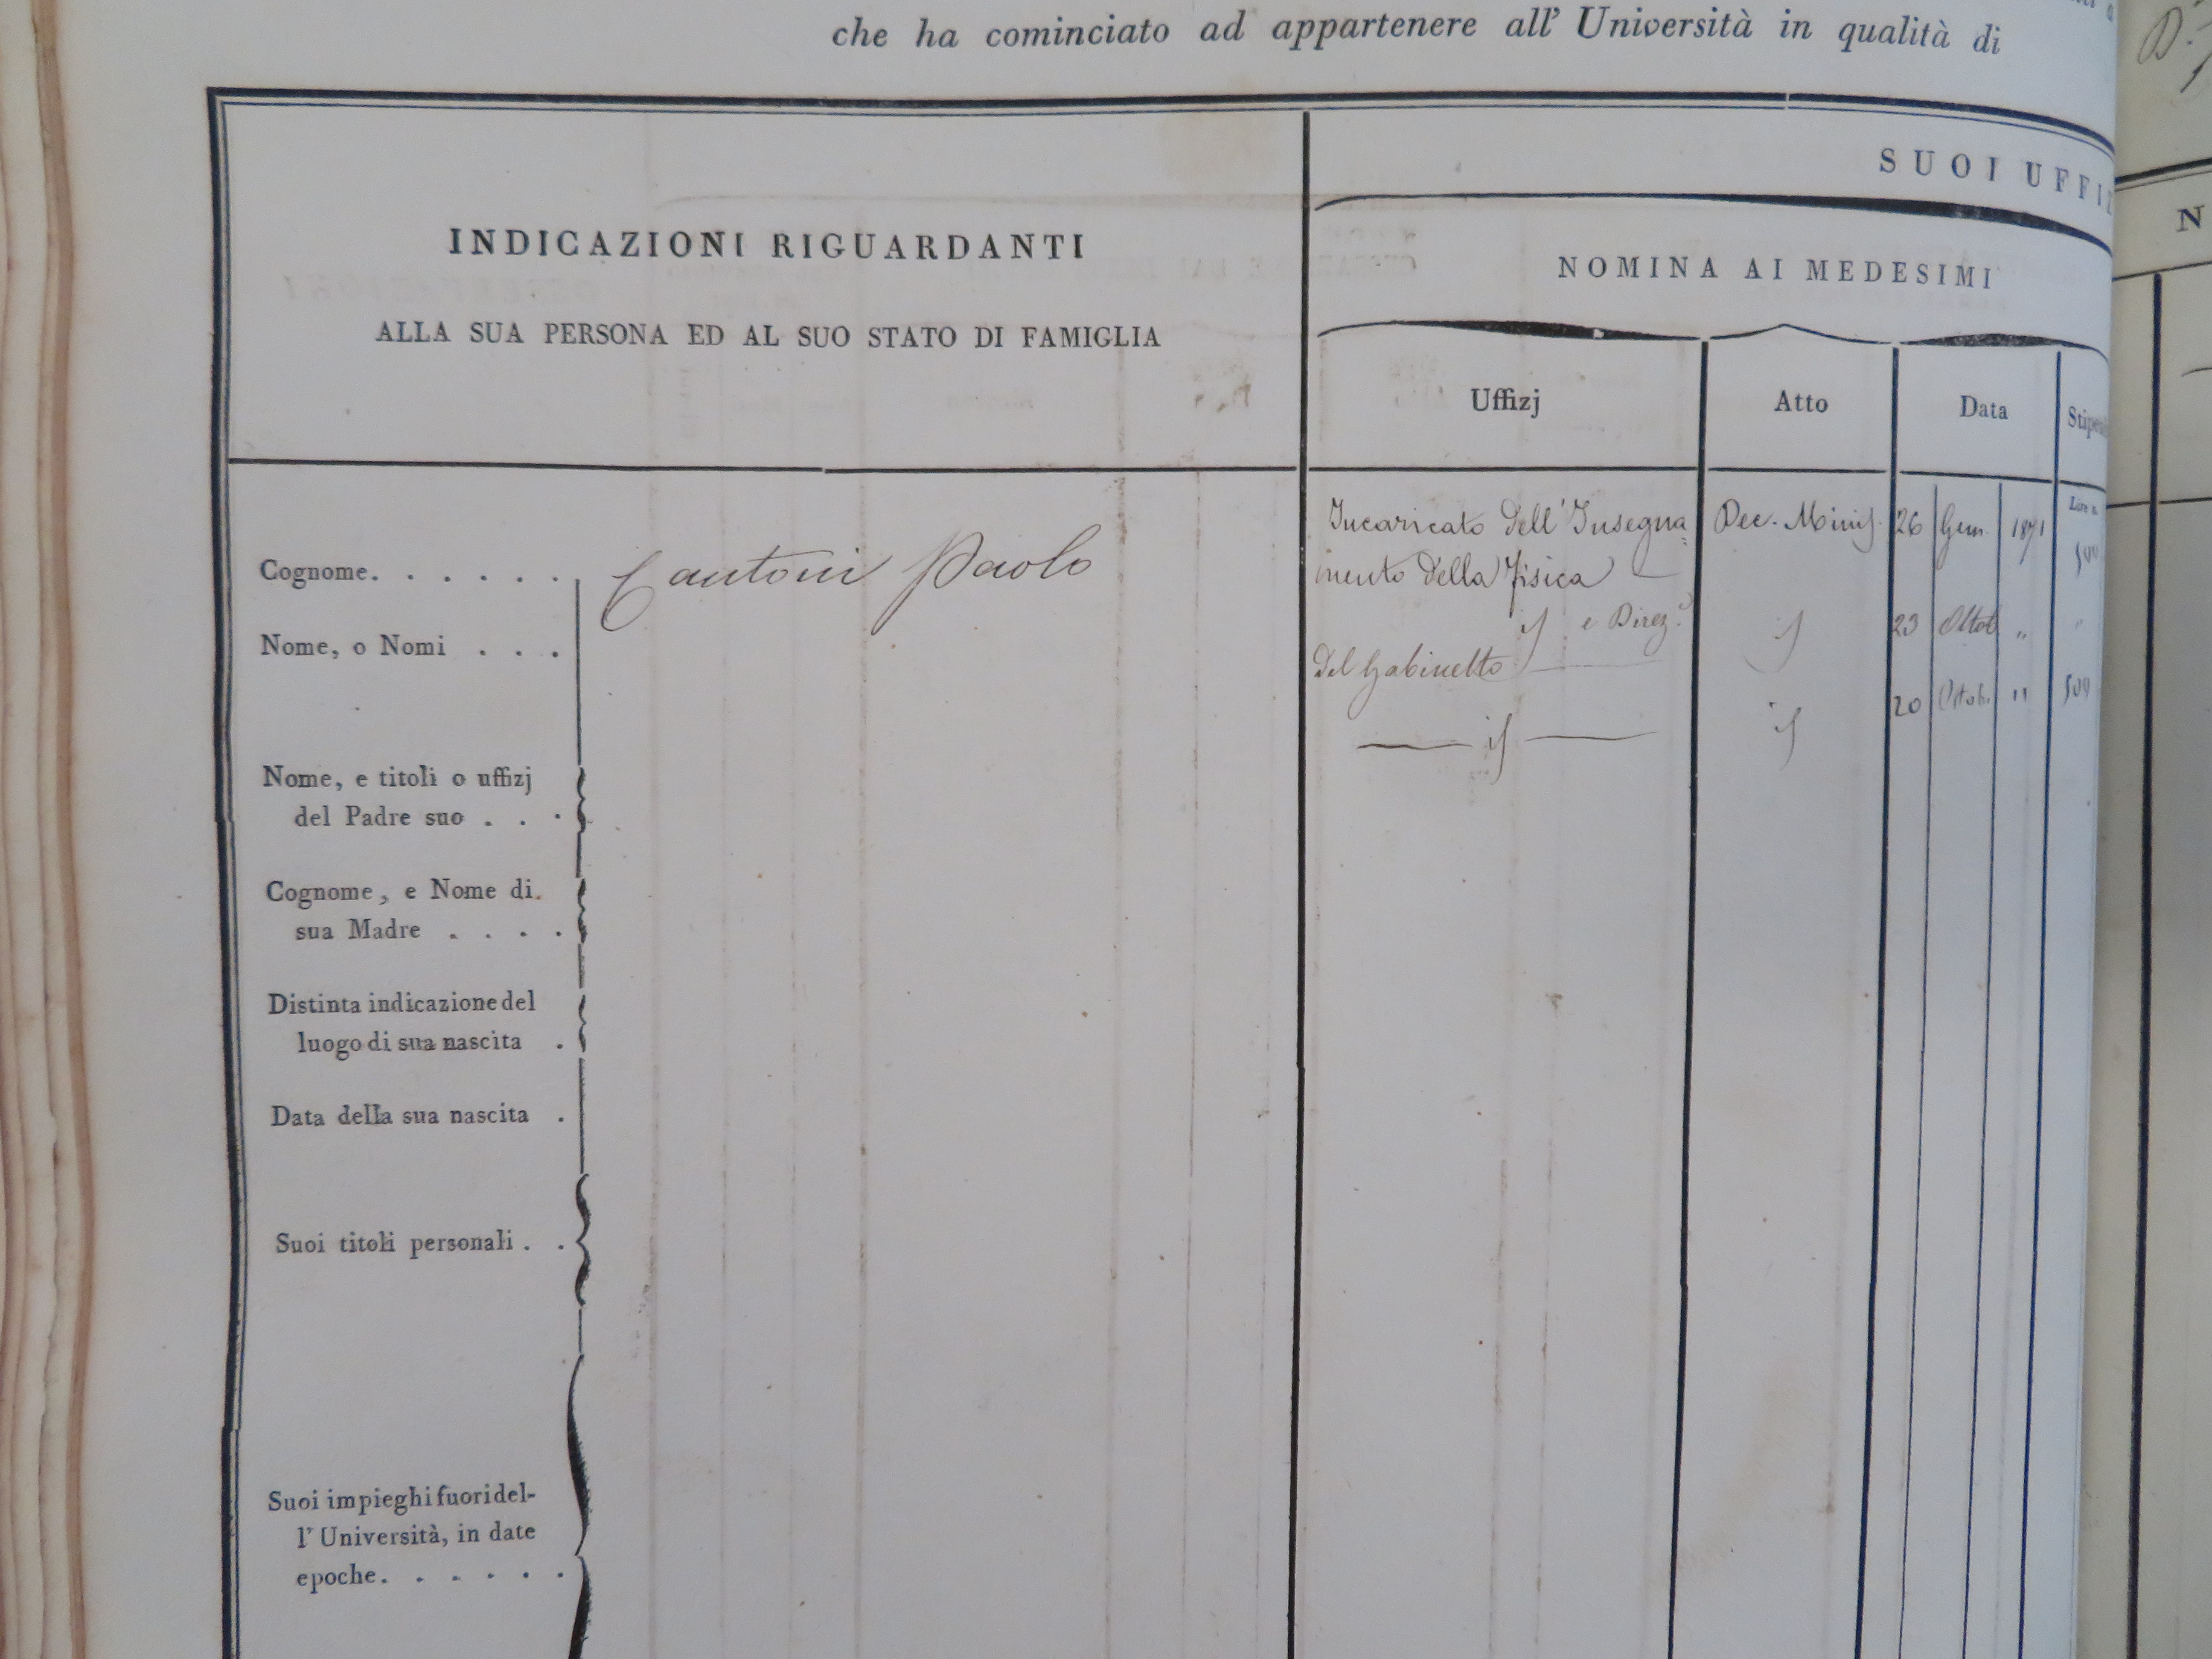 che ha cominciato ad appartenere all' Università in qualità di
SUOI UFFIZ
INDICAZIONI RIGUARDANTI
ALLA SUA PERSONA ED AL SUO STATO DI FAMIGLIA
NOMINA AI MEDESIMI
N
Uffizj
Atto
Data
Stipen
Lire n.
Cognome. . . . . . .
Cantoni Paolo
Incaricato dell'Insegna
mento della fisica
Dec. Minis. 26 Gen. 1871 500
Nome, o Nomi . . .
if e Direz.e
del Gabinetto
if 23 Ottob „ "
if
if 20 Ottob. " 500
Nome, e titoli o uffizj
del Padre suo . . .
Cognome, e Nome di
sua Madre . . . .
Distinta indicazione del
luogo di sua nascita .
Data della sua nascita .
Suoi titoli personali . .
Suoi impieghi fuori del-
l' Università, in date
epoche. . . . . .